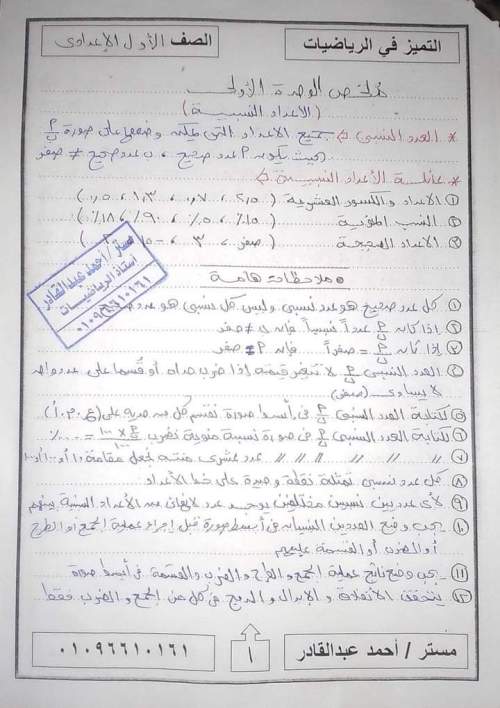 التميز في الرياضيات
الصف الأول الإعدادى
ملخص الوحدة الأولى
(الأعداد النسبية)
* العدد النسبى: جميع الأعداد التى يمكن وضعها على صورة أ/ب
(حيث يكون أ عدد صحيح ، ب عدد صحيح ≠ صفر
* عائلة الأعداد النسبية
① الأعداد والكسور العشرية (٢,٥ ، ٠,٧ ، ١,٣ ، ٠,٥)
② النسب المئوية (١٥٪ ، ٥٪ ، ٩٠٪ ، ١٨٪)
③ الأعداد الصحيحة (صفر ، ٣ ، -١٥
مستر / أحمد عبدالقادر
أستاذ الرياضيات
٠١٠٩٦٦١٠١٦١
ملاحظات هامة
① كل عدد صحيح هو عدد نسبى وليس كل نسبى هو عدد
② إذا كان أ/ب عدداً نسبياً فإن ب ≠ صفر
③ إذا كان أ/ب = صفراً فإن أ = صفر
④ العدد النسبى أ/ب لا تتغير قيمته إذا ضرب حداه أو قسما على عدد واحد
لا يساوى (صفر)
⑤ لكتابة العدد النسبى أ/ب فى أبسط صورة نقسم كل من حديه على (ع.م.أ)
⑥ لكتابة العدد النسبى أ/ب فى صورة نسبة مئوية نضرب أ/ب × ١٠٠/١٠٠ = ٪
⑦ // // // // // // عدد عشرى منته نجعل مقامة ١٠ أو ١٠٠ أو ١٠٠٠
⑧ كل عدد نسبى تمثله نقطة وحيدة على خط الأعداد
⑨ لأى عددين نسبيين مختلفين يوجد عدد لا نهائى من الأعداد النسبية بينهم
⑩ يجب وضع العددين النسبيان فى أبسط صورة قبل إجراء عملية الجمع أو الطرح
أو الضرب أو القسمة عليهم
⑪ يجب وضع ناتج عملية الجمع والطرح والضرب والقسمة فى أبسط صورة
⑫ يتحقق الأنغلاق والإبدال والدمج فى كل من الجمع والضرب فقط
مستر / أحمد عبدالقادر
١
٠١٠٩٦٦١٠١٦١